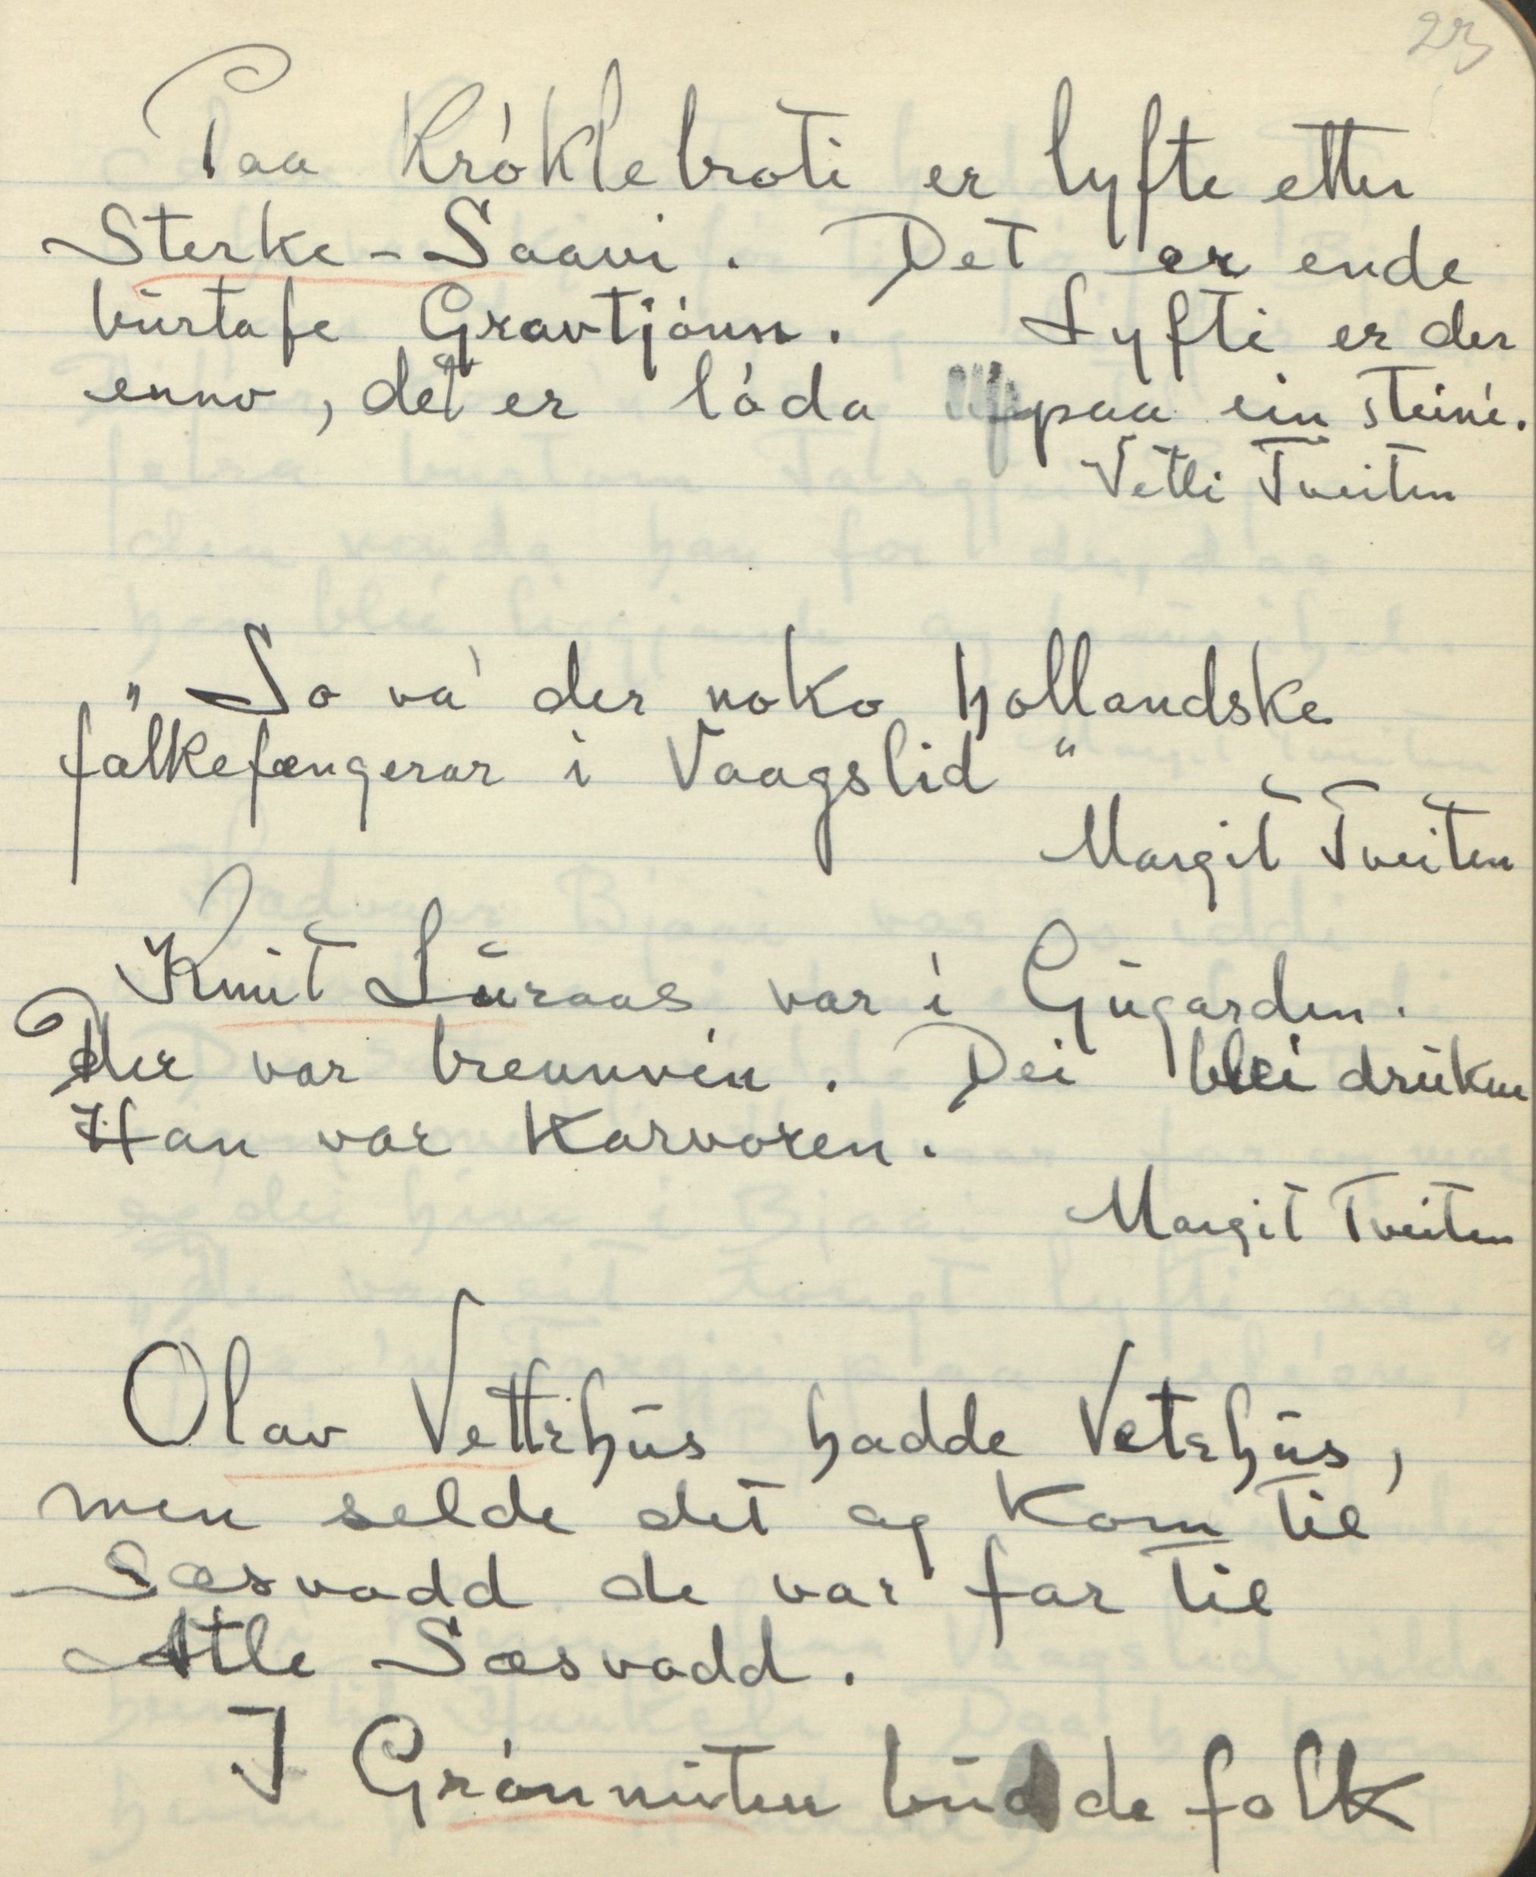 23
Paa Króklebroti er lyfte etter
Sterke-Saavi. Det er ende
burtafe Gravtjónn. Lyfti er der
enno, det er lóda paa ein steine.
Vetli Tveiten
"So va' der noko hollandske
falkefængerar i Vaagslid"
Margit Tveiten
Knut Luraas var i Gugarden.
Der var brennvin. Dei blei drukne
Han var Karvoren.
Margit Tveiten
Olav Vettrhus hadde Vetrhus,
men selde det og kom til
Sæsvadd de var far til
Atle Sæsvadd.
I Grónnuten budde folk